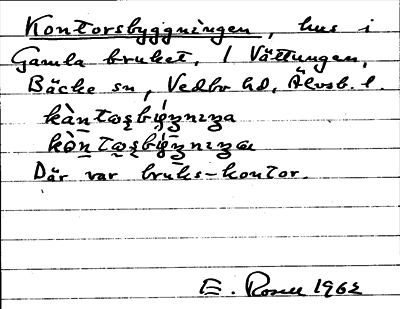 Kontorsbyggningen, hus i
Gamla bruket, / Vättungen,
Bäcke sn, Vedbo hd, Älvsb. l.
Där var bruks-kontor.
E. Rosell 1962